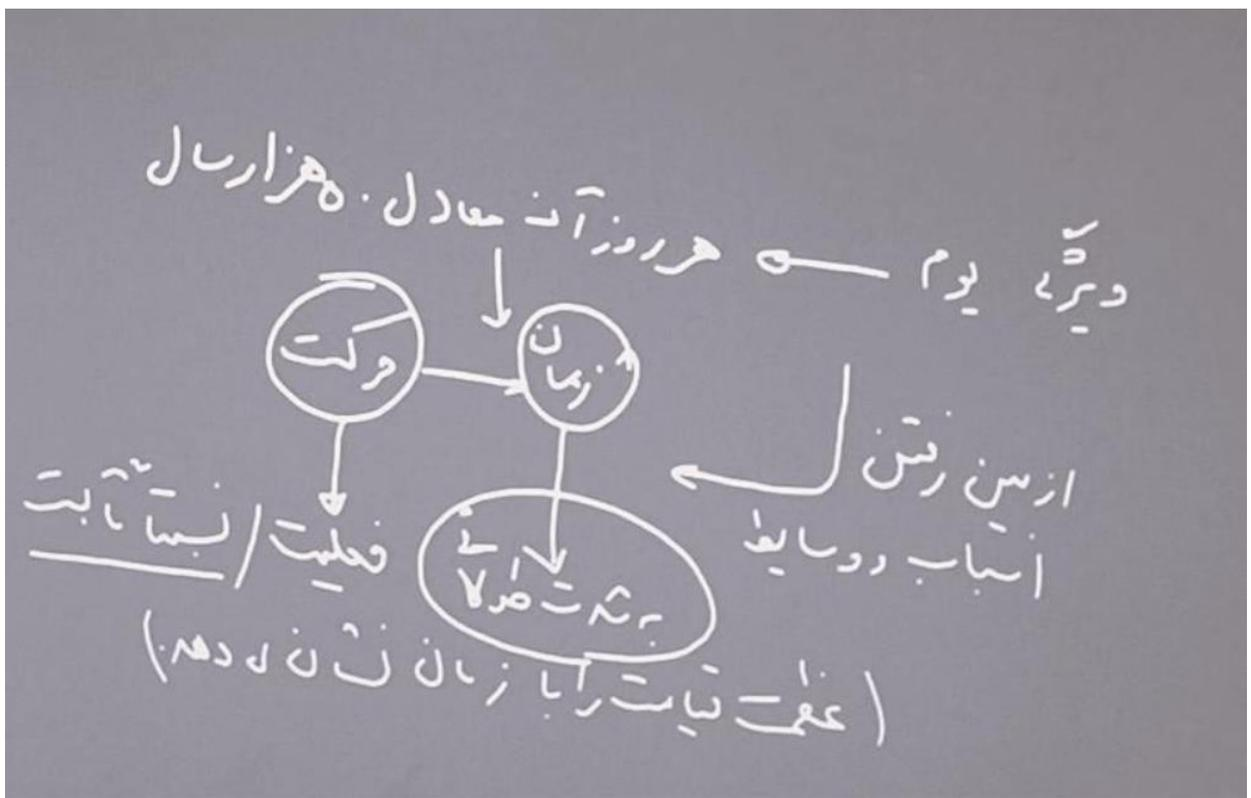 ویژگی یوم ← هر روز آن معادل ۵۰ هزار سال
حرکت → زمان
از بین رفتن
اسباب و وسایط
فعلیت / نسبتاً ثابت
به شدت طولانی
(عظمت قیامت را با زمان نشان می‌دهد.)